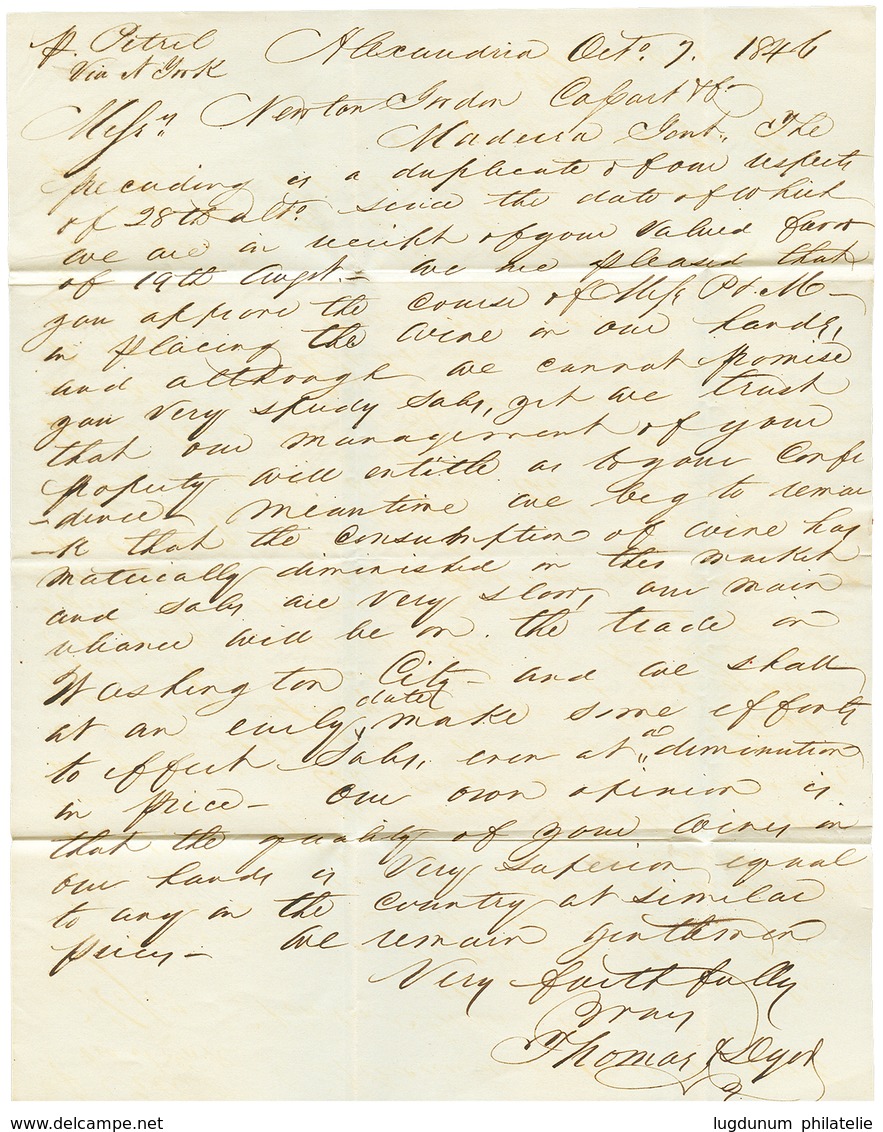 p. Petrel Alexandria Octo. 7. 1846
Via N York
Messrs Newton Gordon Cossart & Co
Madeira Gent,, The
preceeding is a duplicate of our respects
of 28th ulto. since the date of which
we are in receipt of your Valued favor
of 19th Augst. - We are pleased that
you approve the course of Messrs P & M -
in placing the Wine in our hands,
and although we cannot promise
you Very speedy Sales, yet we trust
that our management of your
property will entitle us to your Confi
-dence - Meantime we beg to remar
-k that the Consumption of wine has
materially diminished in this market
and sales are Very slow, our main
reliance will be on the trade in
Washington City - and we shall
at an early date make some efforts
to effect Sales, even at a diminution
in price - Our own opinion is
that the quality of your Wines in
our hands is Very Superior equal
to any in the Country at similar
prices - We remain gentlemen
Very faithfully
Yours
Thomas & Dyer
www.delcampe.net lugdunum philatelie